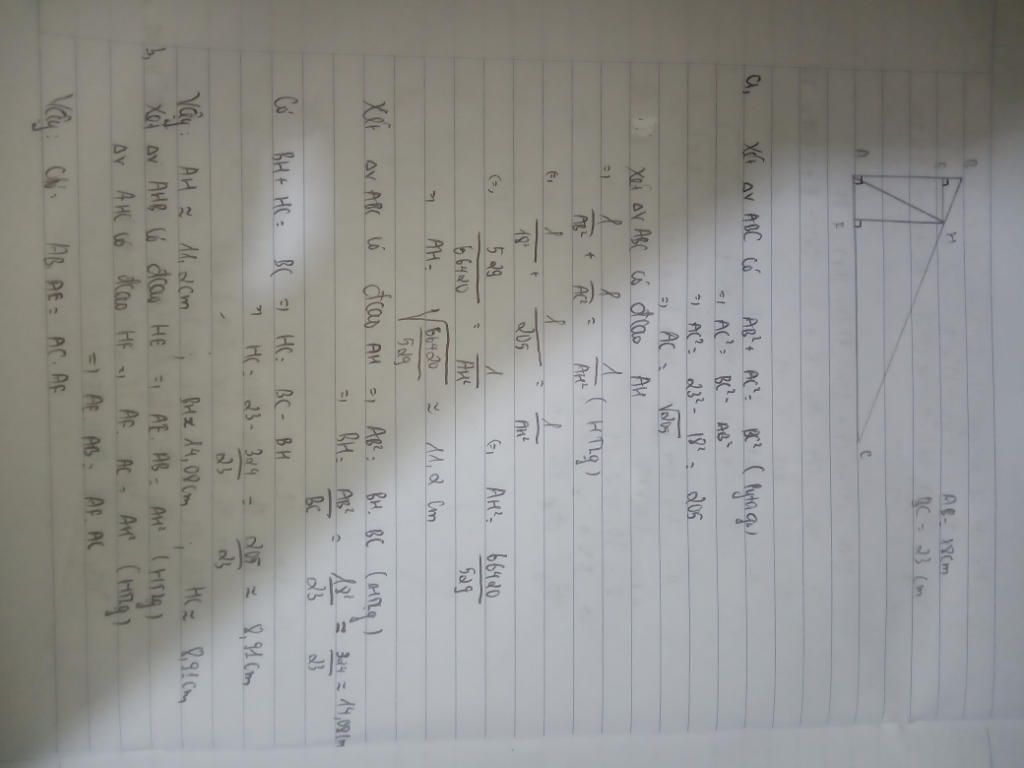 AB = 18cm
BC = 23 cm
B
F
H
A
E
C
a, Xét Δv ABC có AB² + AC² = BC² (Pytago)
=) AC² = BC² - AB²
=) AC² = 23² - 18² = 205
=) AC = √205
Xét Δv ABC có đcao AH
=) 1/AB² + 1/AC² = 1/AH² (HTlg)
(=) 1/18² + 1/205 = 1/AH²
(=) 529/66420 = 1/AH² (=) AH² = 66420/529
=) AH = √66420/529 ≈ 11,2 cm
Xét Δv ABC có đcao AH =) AB² = BH. BC (HTlg)
=) BH = AB²/BC = 18²/23 = 324/23 ≈ 14,08cm
Có BH + HC = BC =) HC = BC - BH
=) HC = 23 - 324/23 = 205/23 ≈ 8,91cm
Vậy: AH ≈ 11,2cm ; BH ≈ 14,08cm ; HC ≈ 8,91cm
b, Xét Δv AHB có đcao HF =) AF. AB = AH² (HTlg)
Δv AHC có đcao HE =) AE. AC = AH² (HTlg)
=) AF. AB = AE. AC
Vậy: AB. AF = AC. AE